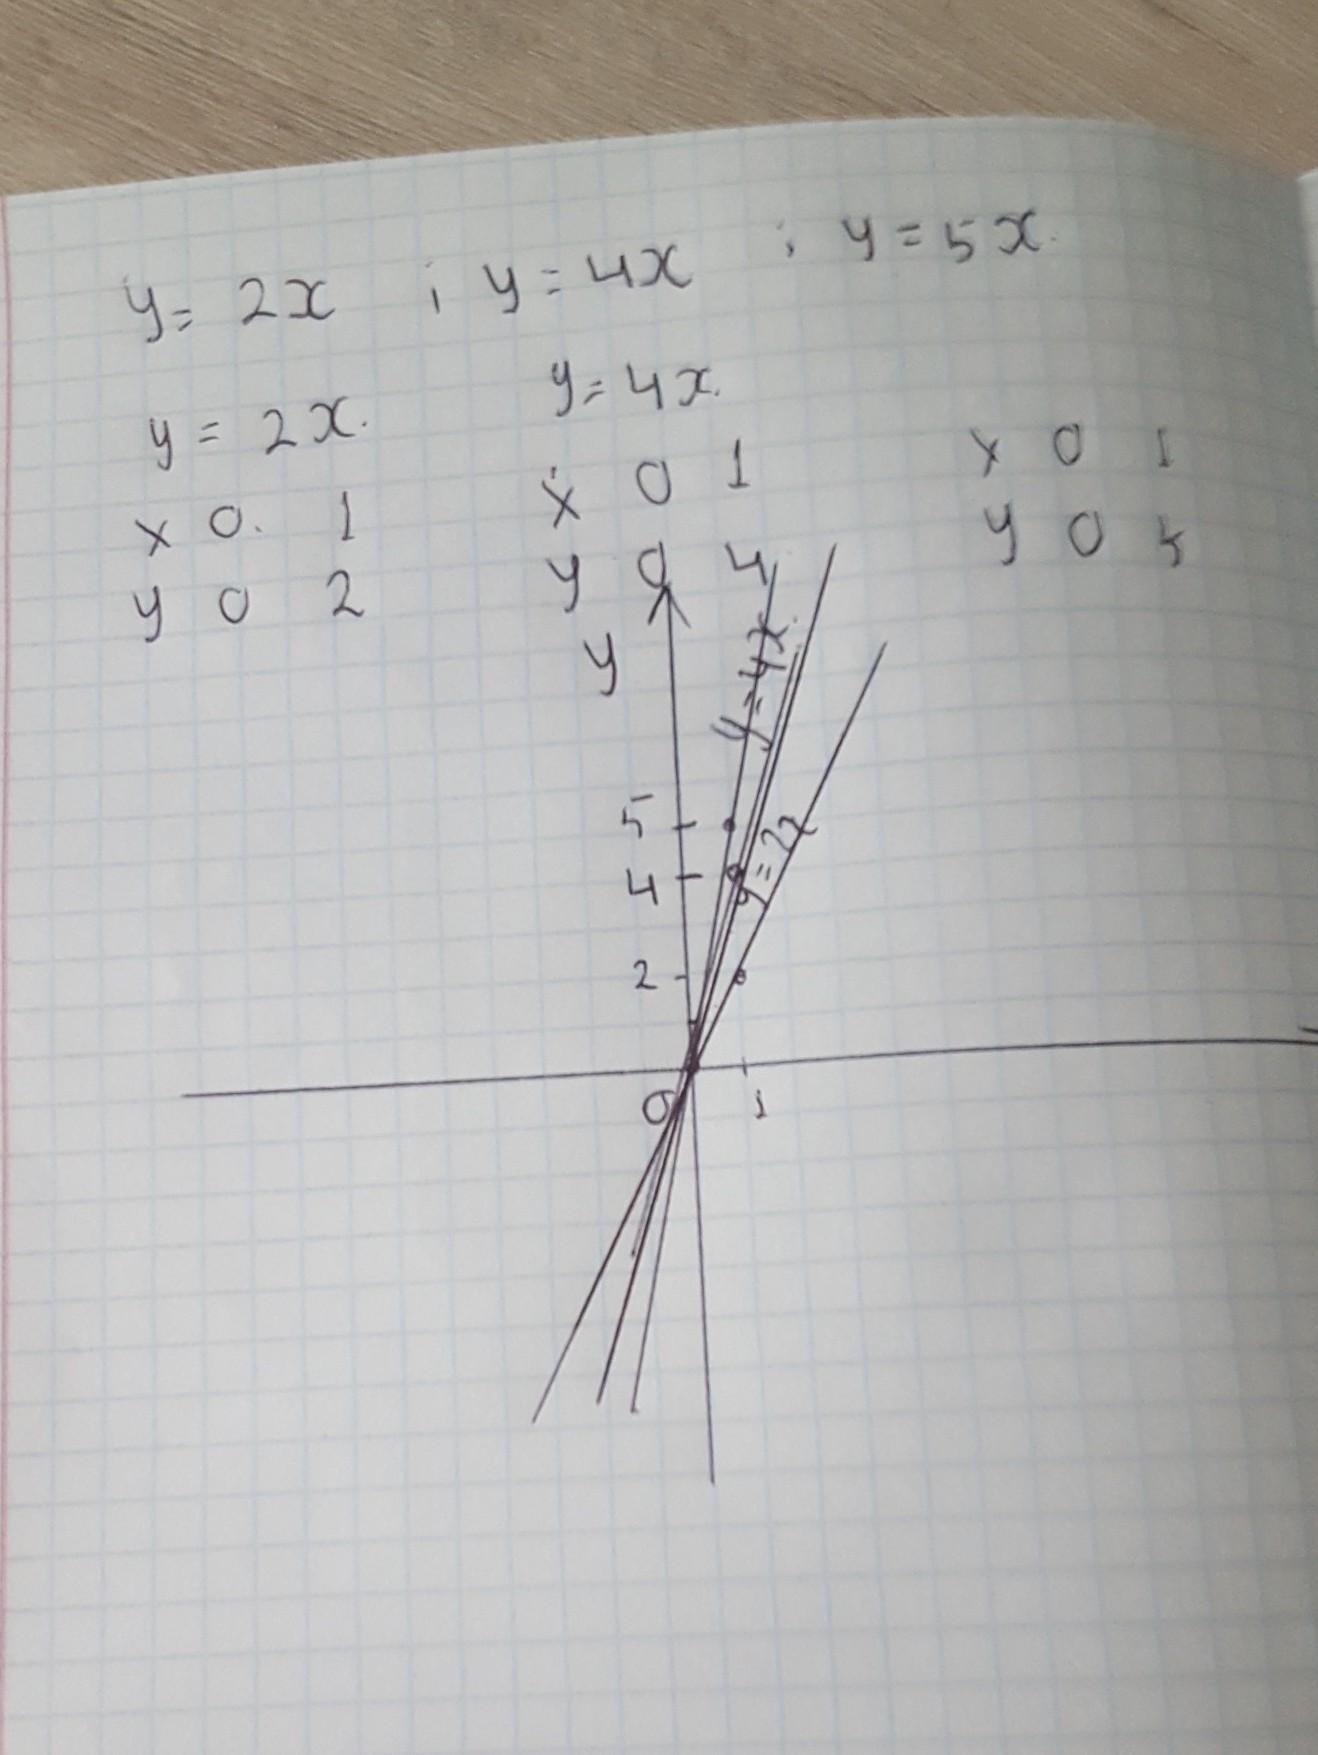 y = 2x ; y = 4x ; y = 5x.
y = 2x. y = 4x.
x 0. 1 x 0 1 x 0 1
y 0 2 y 0 4 y 0 5
y
y = 4x.
5
y = 2x
4
2
0 1